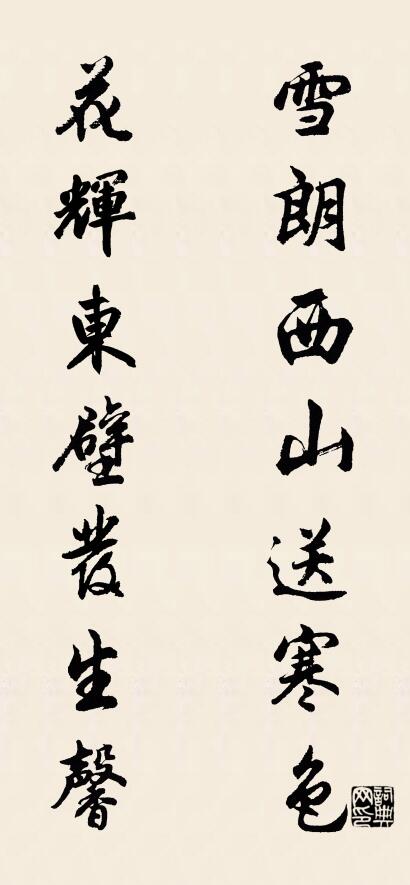 雪朗西山送寒色
花輝東壁發生馨
詞典網印